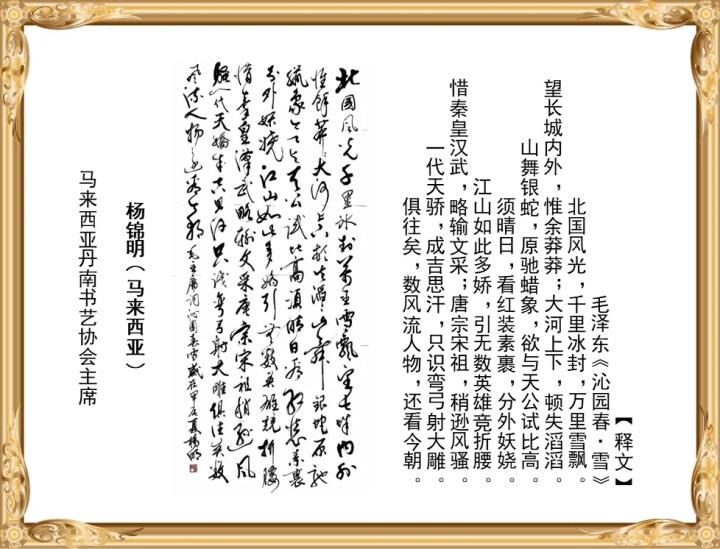 【释文】
毛泽东《沁园春·雪》
北国风光，千里冰封，万里雪飘。
望长城内外，惟余莽莽；大河上下，顿失滔滔。
山舞银蛇，原驰蜡象，欲与天公试比高。
须晴日，看红装素裹，分外妖娆。
江山如此多娇，引无数英雄竞折腰。
惜秦皇汉武，略输文采；唐宗宋祖，稍逊风骚。
一代天骄，成吉思汗，只识弯弓射大雕。
俱往矣，数风流人物，还看今朝。
北國风光千里冰封萬里雪飄望长城内外
惟餘莽莽大河上下頓失滔滔山舞銀蛇原馳
蠟象欲与天公試比高須晴日看红裝素裹
分外妖嬈江山如此多嬌引無數英雄競折腰
惜秦皇漢武略輸文采唐宗宋祖稍遜风
騷一代天驕成吉思汗只识弯弓射大雕俱往矣數
风流人物还看今朝 毛主席词沁園春雪 歲在甲辰夏
杨锦明（马来西亚）
马来西亚丹南书艺协会主席